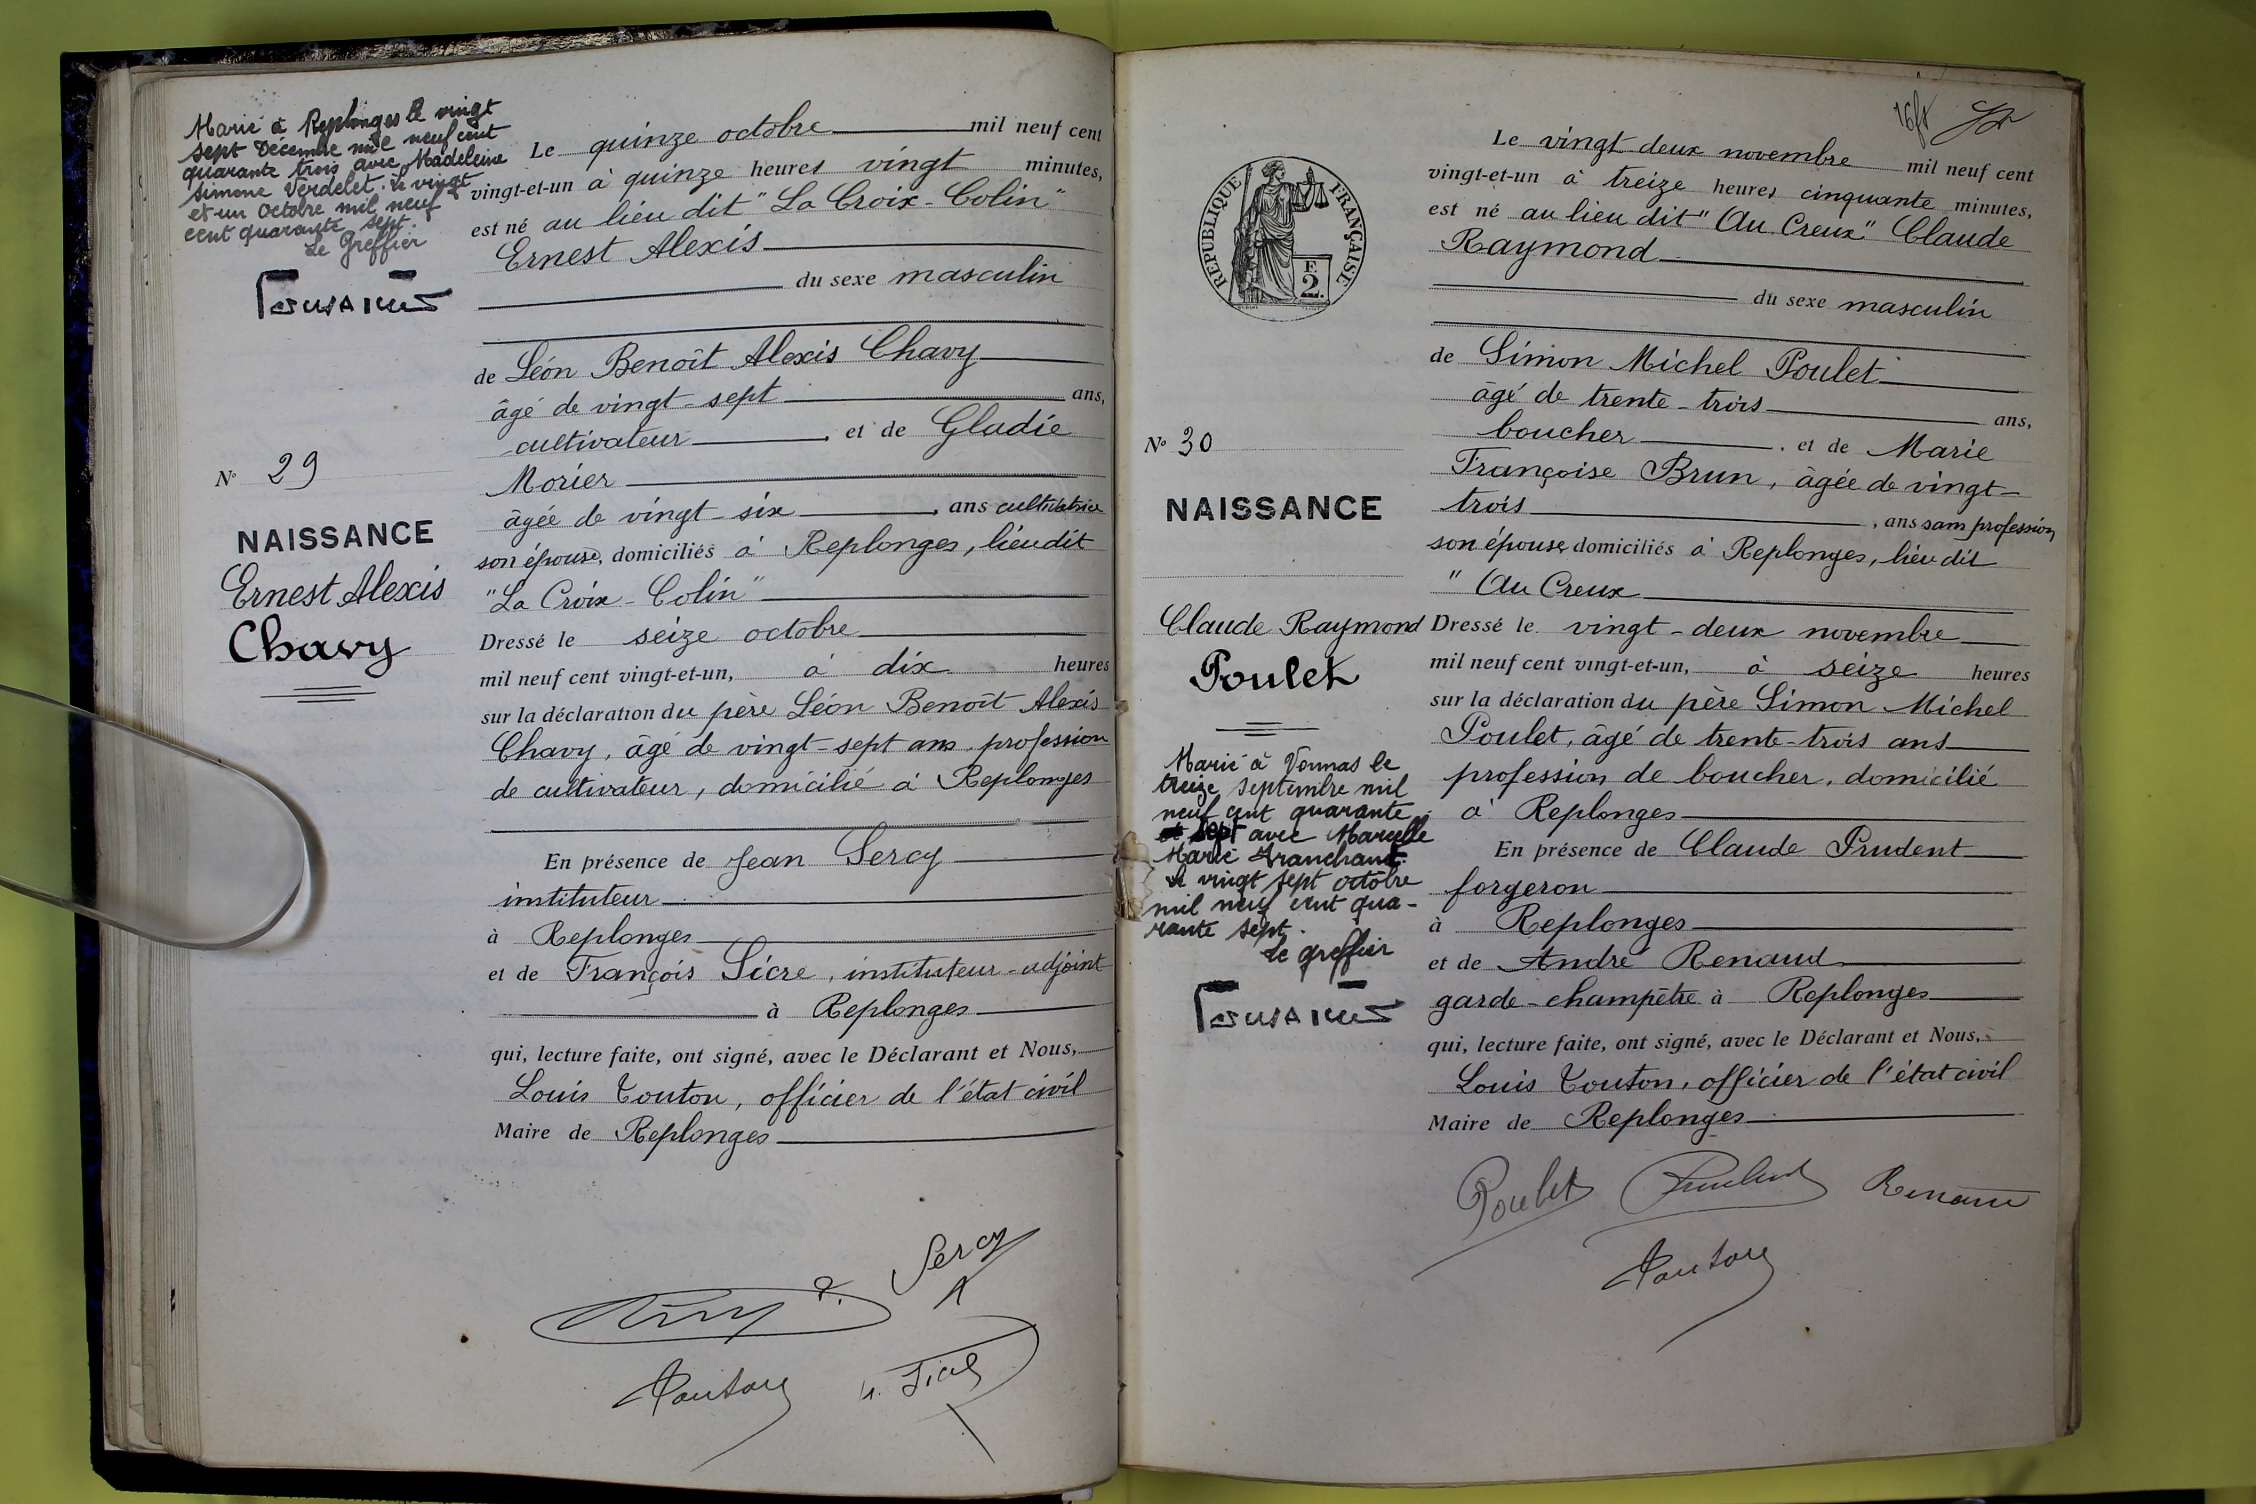 Marié à Replonges le vingt
sept Décembre mil neuf cent
quarante trois avec Madeleine
Simone Verdelet. Le vingt
et un Octobre mil neuf
cent quarante sept.
Le Greffier
N° 29
NAISSANCE
Ernest Alexis
Chavy
Le quinze octobre mil neuf cent
vingt-et-un à quinze heures vingt minutes,
est né au lieu dit "La Croix-Colin"
Ernest Alexis
du sexe masculin
de Léon Benoît Alexis Chavy
âgé de vingt-sept ans,
cultivateur, et de Gladie
Morier
âgée de vingt-six, ans cultivatrice
son épouse, domiciliés à Replonges, lieu dit
"La Croix-Colin"
Dressé le seize octobre
mil neuf cent vingt-et-un, à dix heures
sur la déclaration du père Léon Benoît Alexis
Chavy, âgé de vingt-sept ans, profession
de cultivateur, domicilié à Replonges
En présence de Jean Sercy
instituteur
à Replonges
et de François Sicre, instituteur-adjoint
à Replonges
qui, lecture faite, ont signé, avec le Déclarant et Nous,
Louis Touton, officier de l'état civil
Maire de Replonges
Sercy
Touton
RÉPUBLIQUE FRANÇAISE
E
2.
N° 30
NAISSANCE
Claude Raymond
Poulet
Marié à Vonnas le
treize septembre mil
neuf cent quarante
avec Marcelle
Marie Franchant.
Le vingt sept octobre
mil neuf cent qua-
rante sept.
Le greffier
Le vingt-deux novembre mil neuf cent
vingt-et-un à treize heures cinquante minutes,
est né au lieu dit "Au Creux" Claude
Raymond
du sexe masculin
de Simon Michel Poulet
âgé de trente-trois ans,
boucher, et de Marie
Françoise Brun, âgée de vingt-
trois, ans sans profession
son épouse, domiciliés à Replonges, lieu dit
"Au Creux
Dressé le vingt-deux novembre
mil neuf cent vingt-et-un, à seize heures
sur la déclaration du père Simon Michel
Poulet, âgé de trente-trois ans
profession de boucher, domicilié
à Replonges
En présence de Claude Prudent
forgeron
à Replonges
et de André Renaud
garde-champêtre à Replonges
qui, lecture faite, ont signé, avec le Déclarant et Nous,
Louis Touton, officier de l'état civil
Maire de Replonges
Poulet Prudent Renaud
Touton